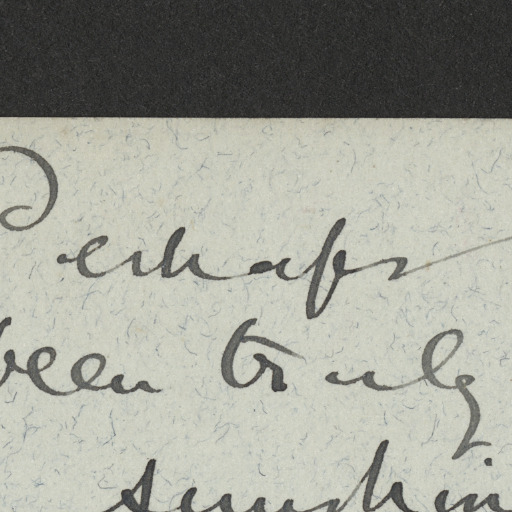 Perhaps
been truly
sunshin